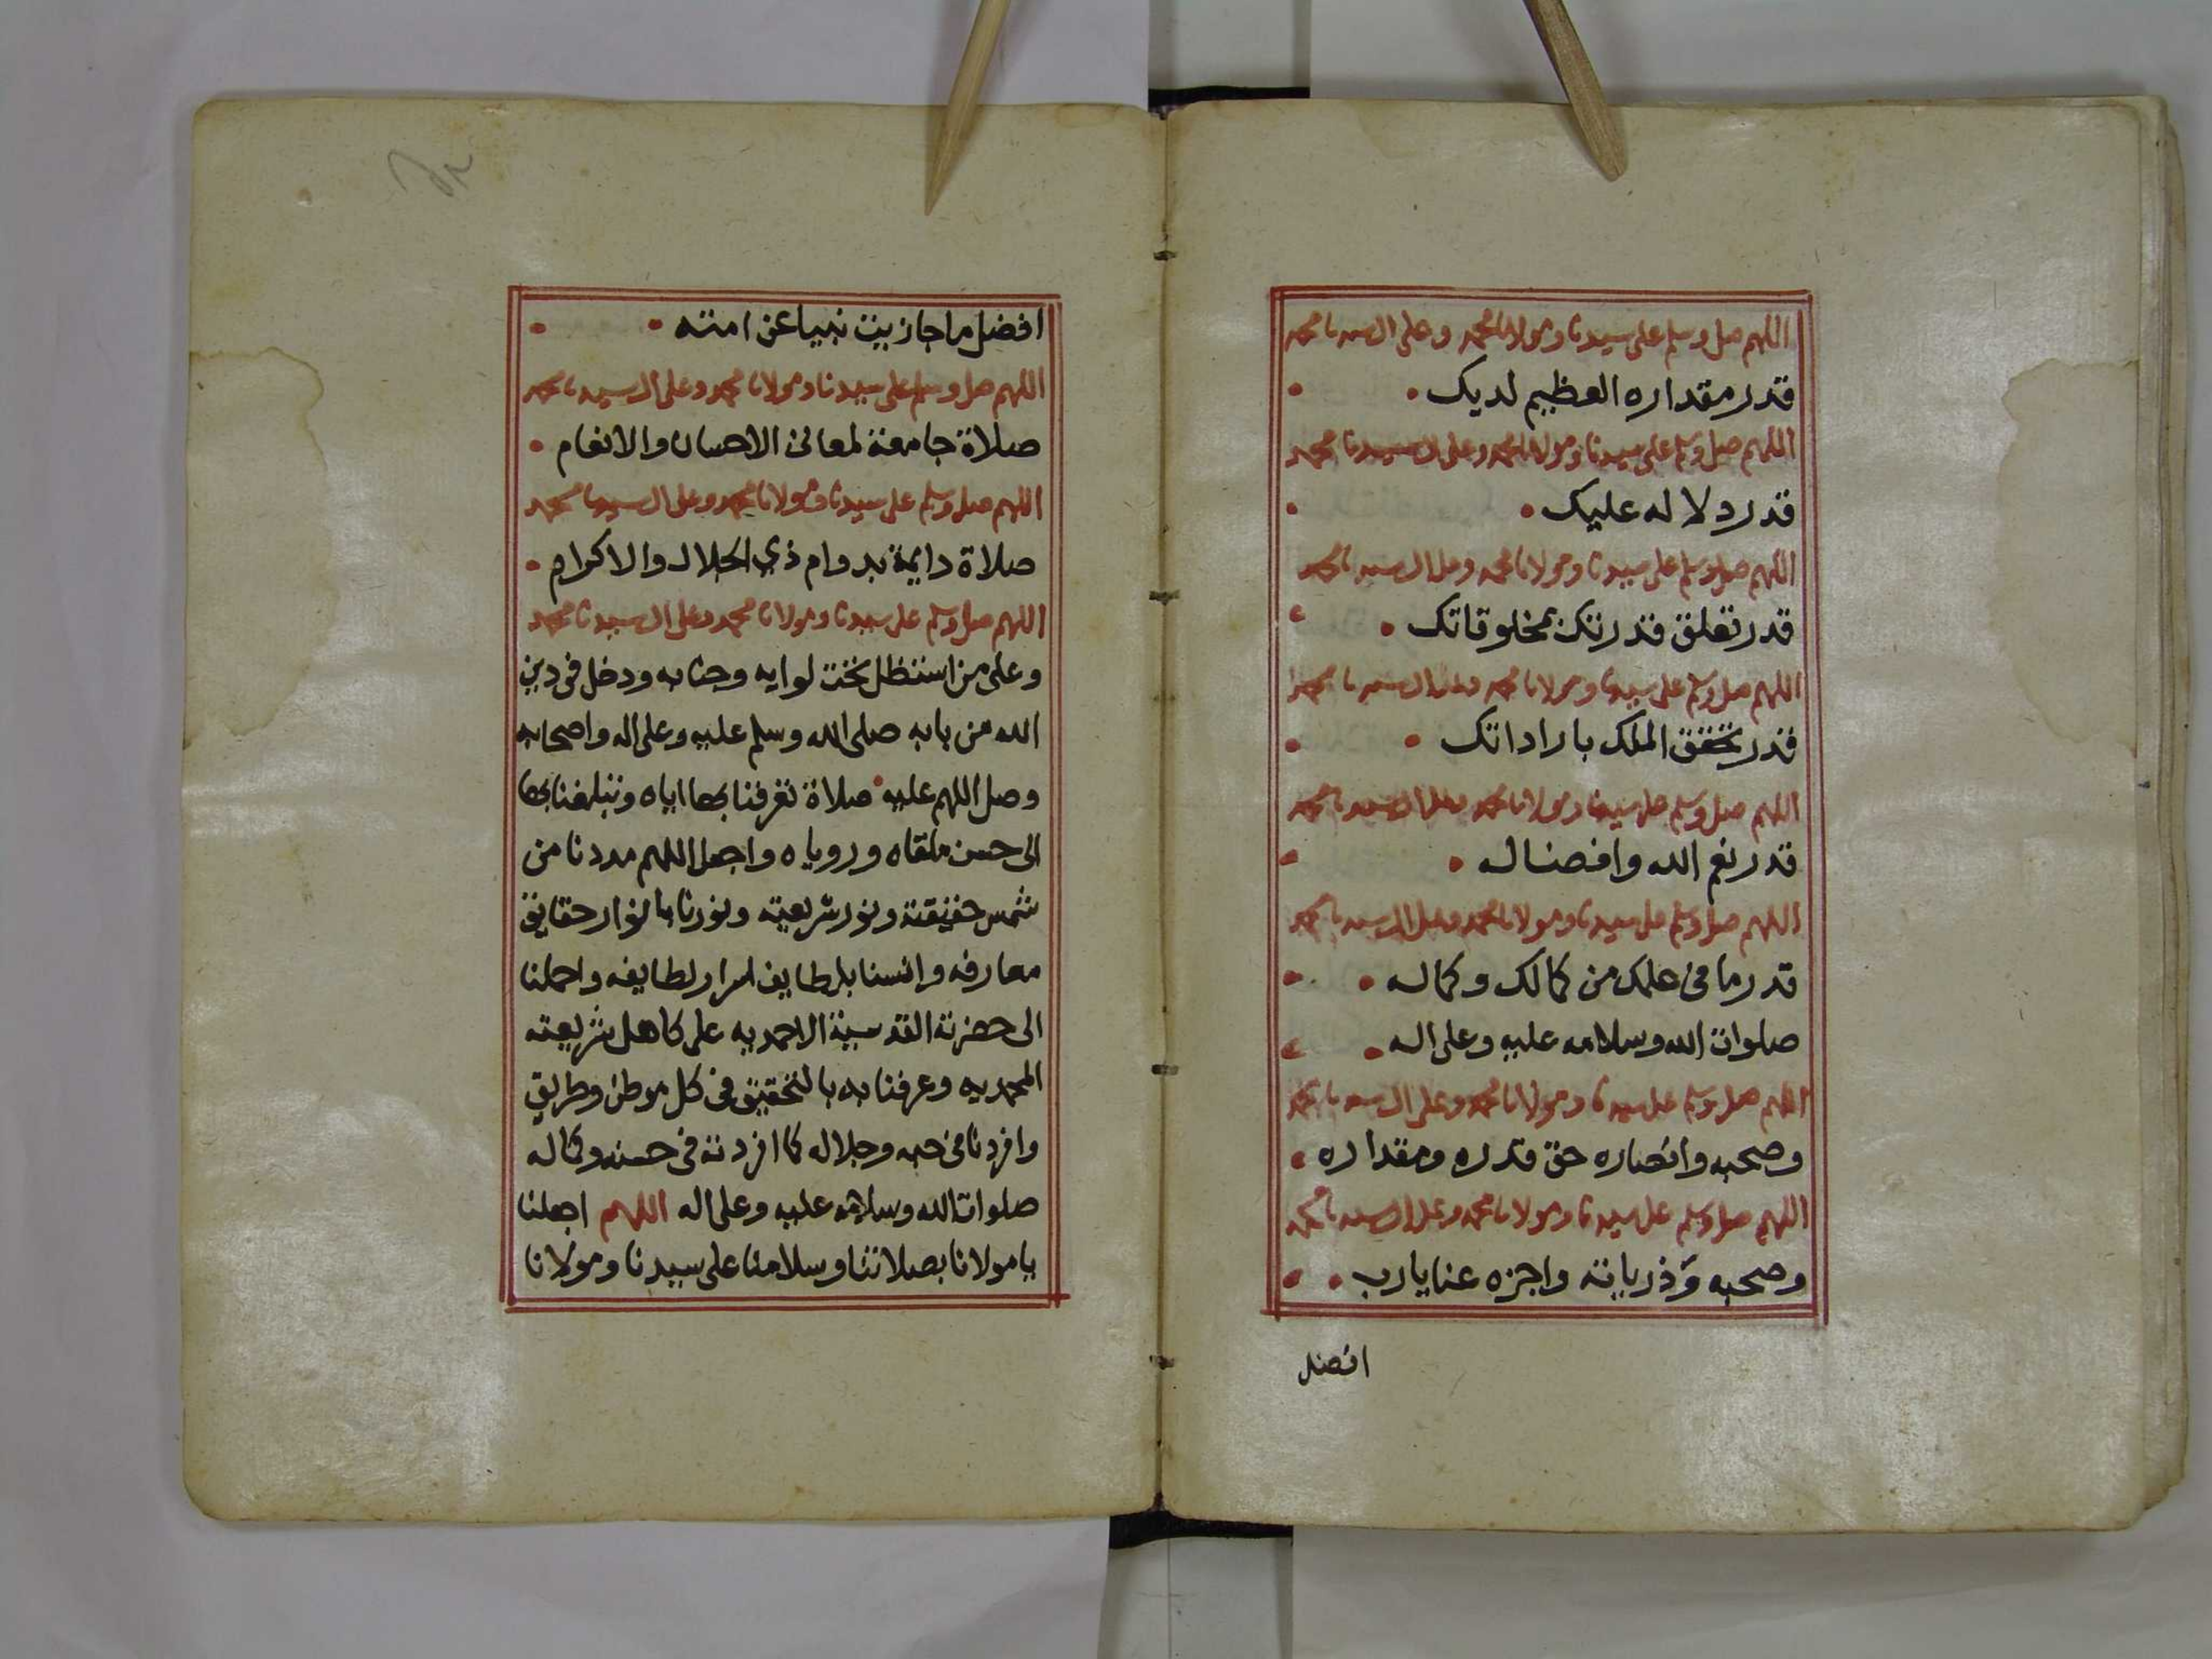 اللهم صل وسلم على سيدنا ومولانا محمد وعلى ال سيدنا محمد
قدر مقداره العظيم لديك
اللهم صل وسلم على سيدنا ومولانا محمد وعلى ال سيدنا محمد
قدر دلاله عليك
اللهم صل وسلم على سيدنا ومولانا محمد وعلى ال سيدنا محمد
قدر تعلق قدرتك بمخلوقاتك
اللهم صل وسلم على سيدنا ومولانا محمد وعلى ال سيدنا محمد
قدر تحقق الملك باراداتك
اللهم صل وسلم على سيدنا ومولانا محمد وعلى ال سيدنا محمد
قدر نعم الله وافضاله
اللهم صل وسلم على سيدنا ومولانا محمد وعلى ال سيدنا محمد
قدر ما في علمك من كمالك وكماله
صلوات الله وسلامه عليه وعلى اله
اللهم صل وسلم على سيدنا ومولانا محمد وعلى ال سيدنا محمد
وصحبه وانصاره حق قدره ومقداره
اللهم صل وسلم على سيدنا ومولانا محمد وعلى ال سيدنا محمد
وصحبه وذرياته واجزه عنا يارب
افضل
افضل ما جازيت نبيا عن امته
اللهم صل وسلم على سيدنا ومولانا محمد وعلى ال سيدنا محمد
صلاة جامعة لمعاني الاحسان والانعام
اللهم صل وسلم على سيدنا ومولانا محمد وعلى ال سيدنا محمد
صلاة دايمة بدوام ذي الجلال والاكرام
اللهم صل وسلم على سيدنا ومولانا محمد وعلى ال سيدنا محمد
وعلى من استظل تحت لوايه وجنابه ودخل في دين
الله من بابه صلى الله وسلم عليه وعلى اله واصحابه
وصل اللهم عليه صلاة تعرفنا بها اياه وتبلغنا بها
الى حسن ملقاه ورؤياه واجعل اللهم مددنا من
شمس حقيقته ونور شريعته ونورنا بانوار حقايق
معارفه وانسنا بلطايف اسرار لطايفه واحملنا
الى حضرته القدسية الاحمديه على كاهل شريعته
المحمديه وعرفنا به بالتحقيق في كل موطن وطريق
وافردنا في حبه وجلاله كما افردته في حسنه وكماله
صلوات الله وسلامه عليه وعلى اله اللهم اجعلنا
يا مولانا بصلاتنا وسلامنا على سيدنا ومولانا